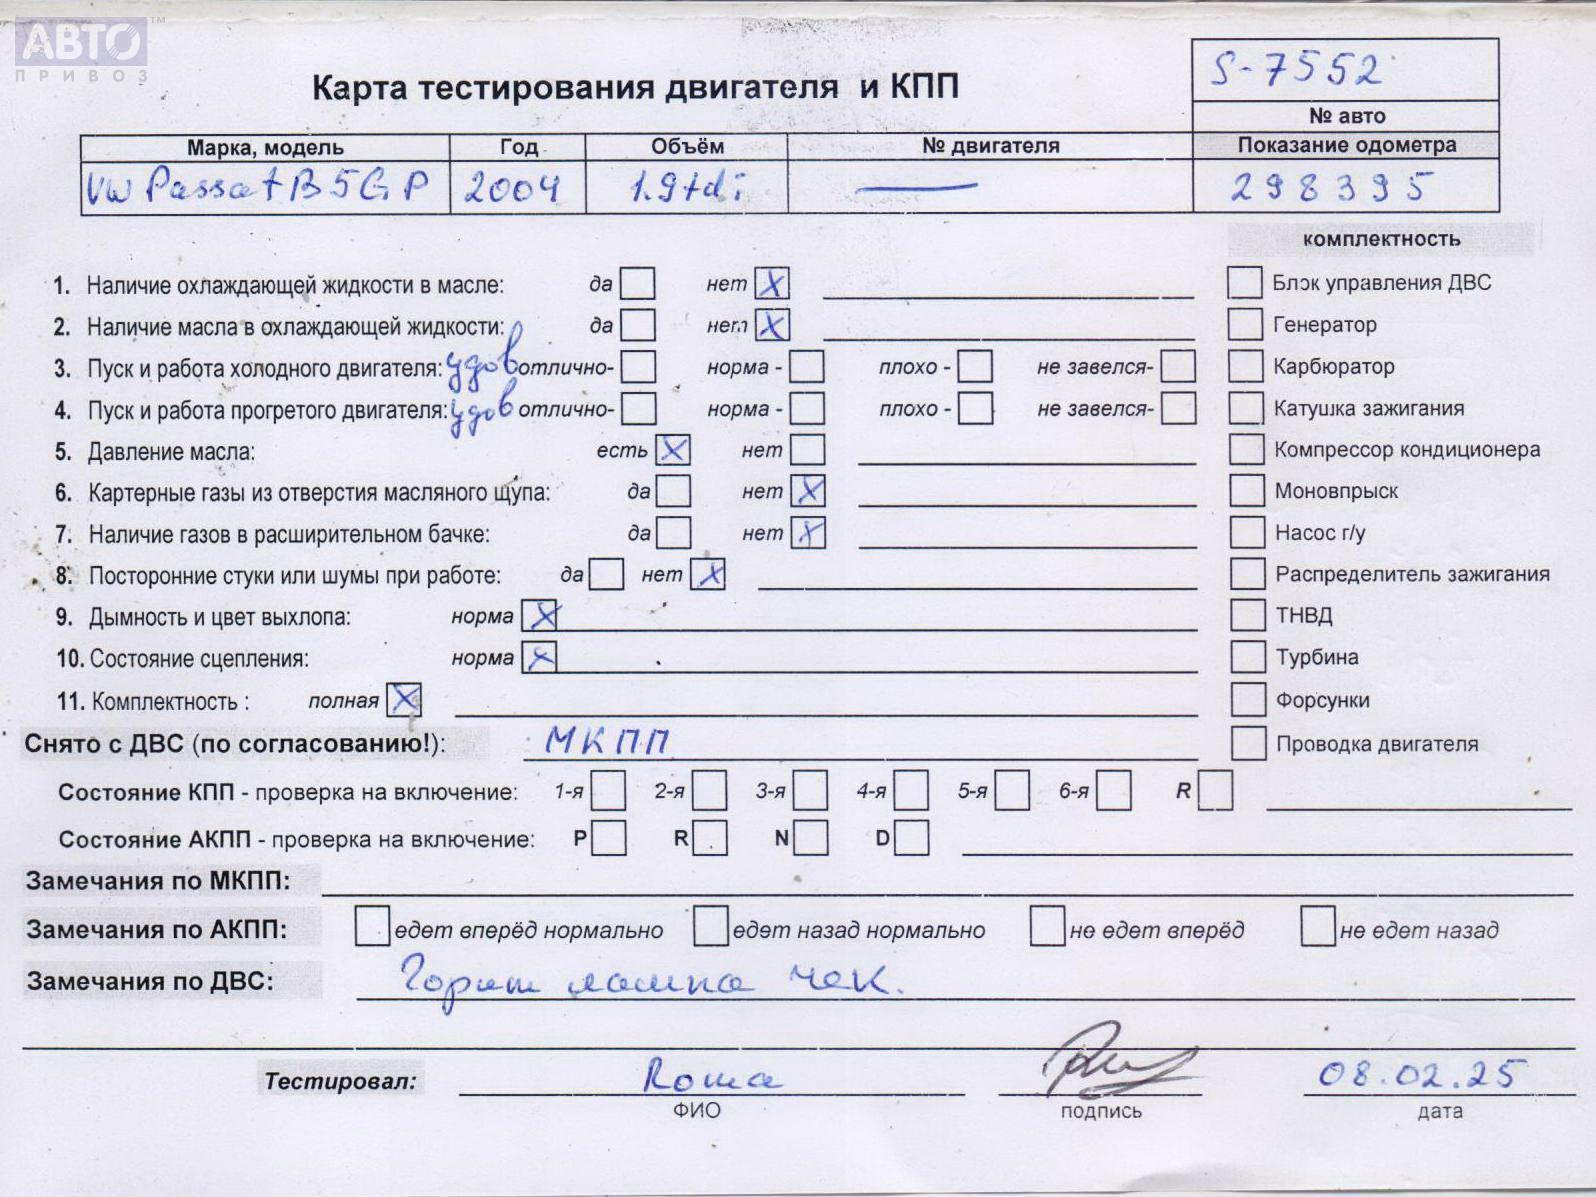 АВТО ™
ПРИВОЗ
S-7552
Карта тестирования двигателя и КПП
№ авто
Марка, модель Год Объём № двигателя Показание одометра
VW Passat B5GP 2004 1.9tdi — 298395
комплектность
1. Наличие охлаждающей жидкости в масле: да нет X Блок управления ДВС
2. Наличие масла в охлаждающей жидкости: да нет X Генератор
3. Пуск и работа холодного двигателя: удов отлично- норма - плохо - не завелся- Карбюратор
4. Пуск и работа прогретого двигателя: удов отлично- норма - плохо - не завелся- Катушка зажигания
5. Давление масла: есть X нет Компрессор кондиционера
6. Картерные газы из отверстия масляного щупа: да нет X Моновпрыск
7. Наличие газов в расширительном бачке: да нет X Насос г/у
8. Посторонние стуки или шумы при работе: да нет X Распределитель зажигания
9. Дымность и цвет выхлопа: норма X ТНВД
10. Состояние сцепления: норма X Турбина
11. Комплектность : полная X Форсунки
Снято с ДВС (по согласованию!): МКПП Проводка двигателя
Состояние КПП - проверка на включение: 1-я 2-я 3-я 4-я 5-я 6-я R
Состояние АКПП - проверка на включение: P R N D
Замечания по МКПП:
Замечания по АКПП: едет вперёд нормально едет назад нормально не едет вперёд не едет назад
Замечания по ДВС: Горит лампа чек.
Тестировал: Рома 08.02.25
ФИО подпись дата